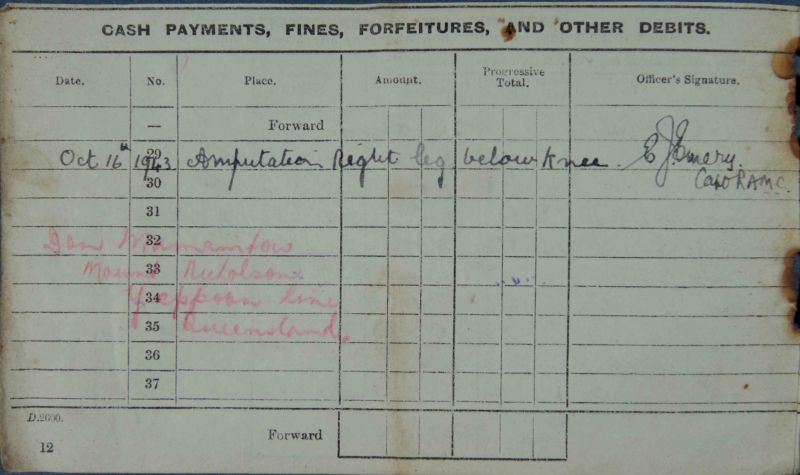 CASH PAYMENTS, FINES, FORFEITURES, AND OTHER DEBITS.
Date. No. Place. Amount. Progressive Total. Officer's Signature.
— Forward
29
Oct 16th 1943 Amputation Right leg below Knee. E J Emery.
30 Capt RAMC.
31
32
Don
33
Mount
34
Yeppoon line
35
Queensland.
36
37
D.2600.
Forward
12